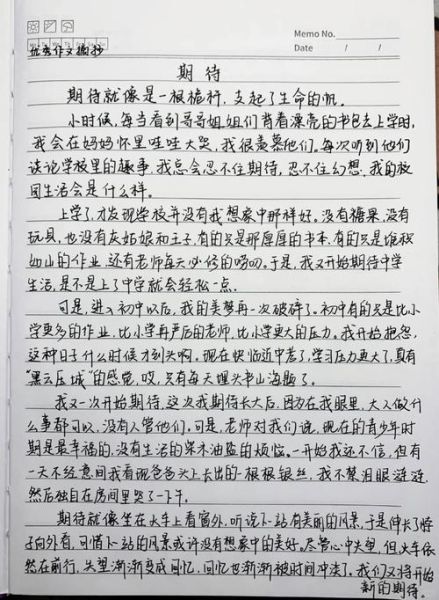 Memo No.
Date / /
优秀作文摘抄
期待
期待就像是一根桅杆，支起了生命的帆。
小时候，每当看到哥哥姐姐们背着漂亮的书包去上学时，
我会在妈妈怀里哇哇大哭，我很羡慕他们。每次听到他们
谈论学校里的趣事，我总会忍不住期待，忍不住幻想，我的校
园生活会是什么样。
上学了，才发现学校并没有我想象中那样好。没有糖果，没有
玩具，也没有灰姑娘和王子，有的只是那厚厚的书本，有的只是堆积
如山的作业，还有老师每天必修的唠叨。于是，我又开始期待中学
生活，是不是上了中学就会轻松一点。
可是，进入初中以后，我的美梦再一次破碎了。初中有的只是比小
学更多的作业，比小学再严厉的老师，比小学更大的压力。我开始抱怨，
这种日子什么时候才到头啊。现在快临近中考了，学习压力更大了，真有
“黑云压城”的感觉，哎，只有每天埋头书山海题了。
我又一次开始期待，这次我期待长大后，因为在我眼里，大人做什
么事都可以，没有人管他们。可是，老师对我们说，现在的青少年时
期是最幸福的，没有生活的柴米油盐的烦恼。一开始我还不信，但有
一天不经意间我看现爸爸头上长出的一根根银丝，我不禁泪眼涟涟，
然后独自在房间里哭了一下午。
期待就像坐在火车上看窗外，听说下一站有美丽的风景，于是伸长了脖
子向外看，可惜下一站的风景或许没有想象中的美好。尽管心中失望，但火车依
然在前行，失望渐渐变成回忆，回忆也渐渐被时间冲淡了。我们又将开始
新的期待。